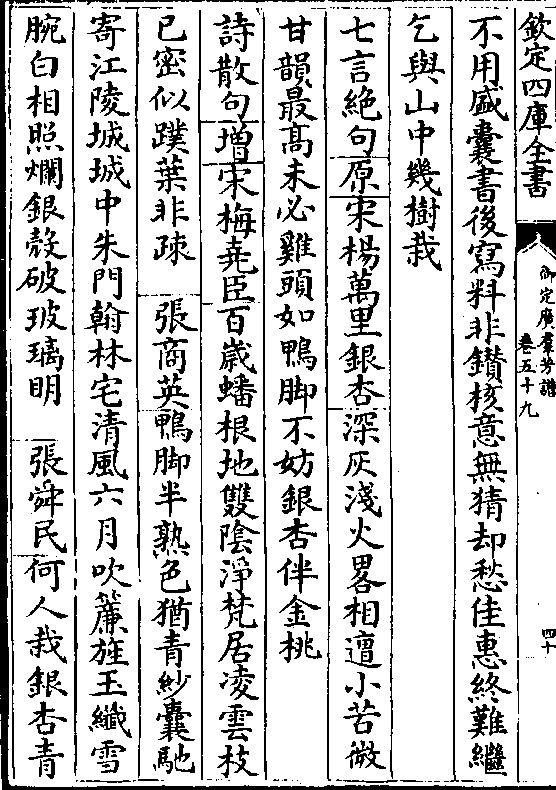 欽定四庫全書
御定廣羣芳譜
卷五十九
四十
不用盛囊書後寫料非鑽核意無猜却愁佳惠終難繼
乞與山中幾樹栽
七言絶句原宋楊萬里銀杏深灰淺火畧相遭小苦微
甘韻最髙未必雞頭如鴨脚不妨銀杏伴金桃
詩散句增宋梅堯臣百歳蟠根地雙陰淨梵居凌雲枝
已密似蹼葉非疎 張商英鴨脚半熟色猶青紗囊馳
寄江陵城城中朱門翰林宅清風六月吹簾旌玉纖雪
腕白相照爛銀殻破玻璃明 張舜民何人栽銀杏青